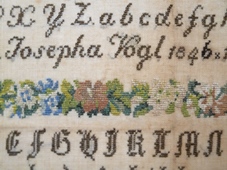 X Y Z a b c d e f g h
Josepha Vogl 1846
E F G H I K L M N